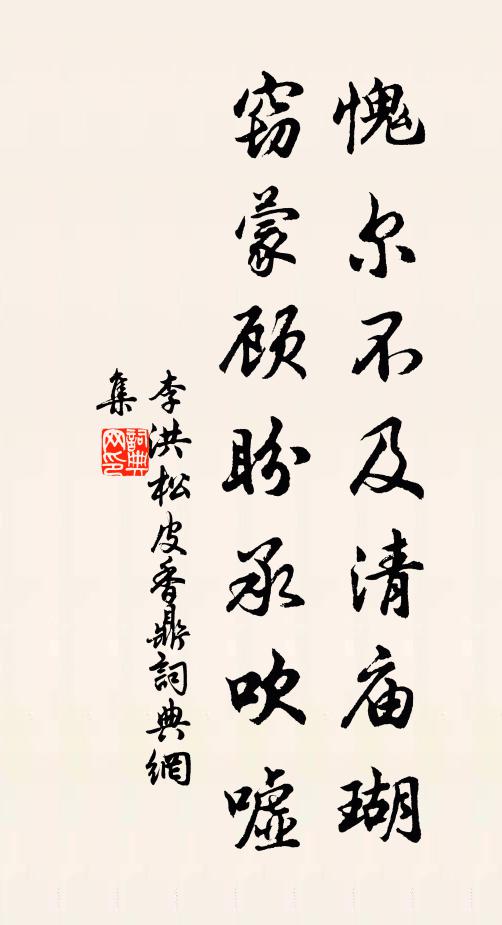 愧尔不及清庙瑚
窃蒙顾盼承吹嘘
李洪松皮香鼎詞典網
集
詞典网印